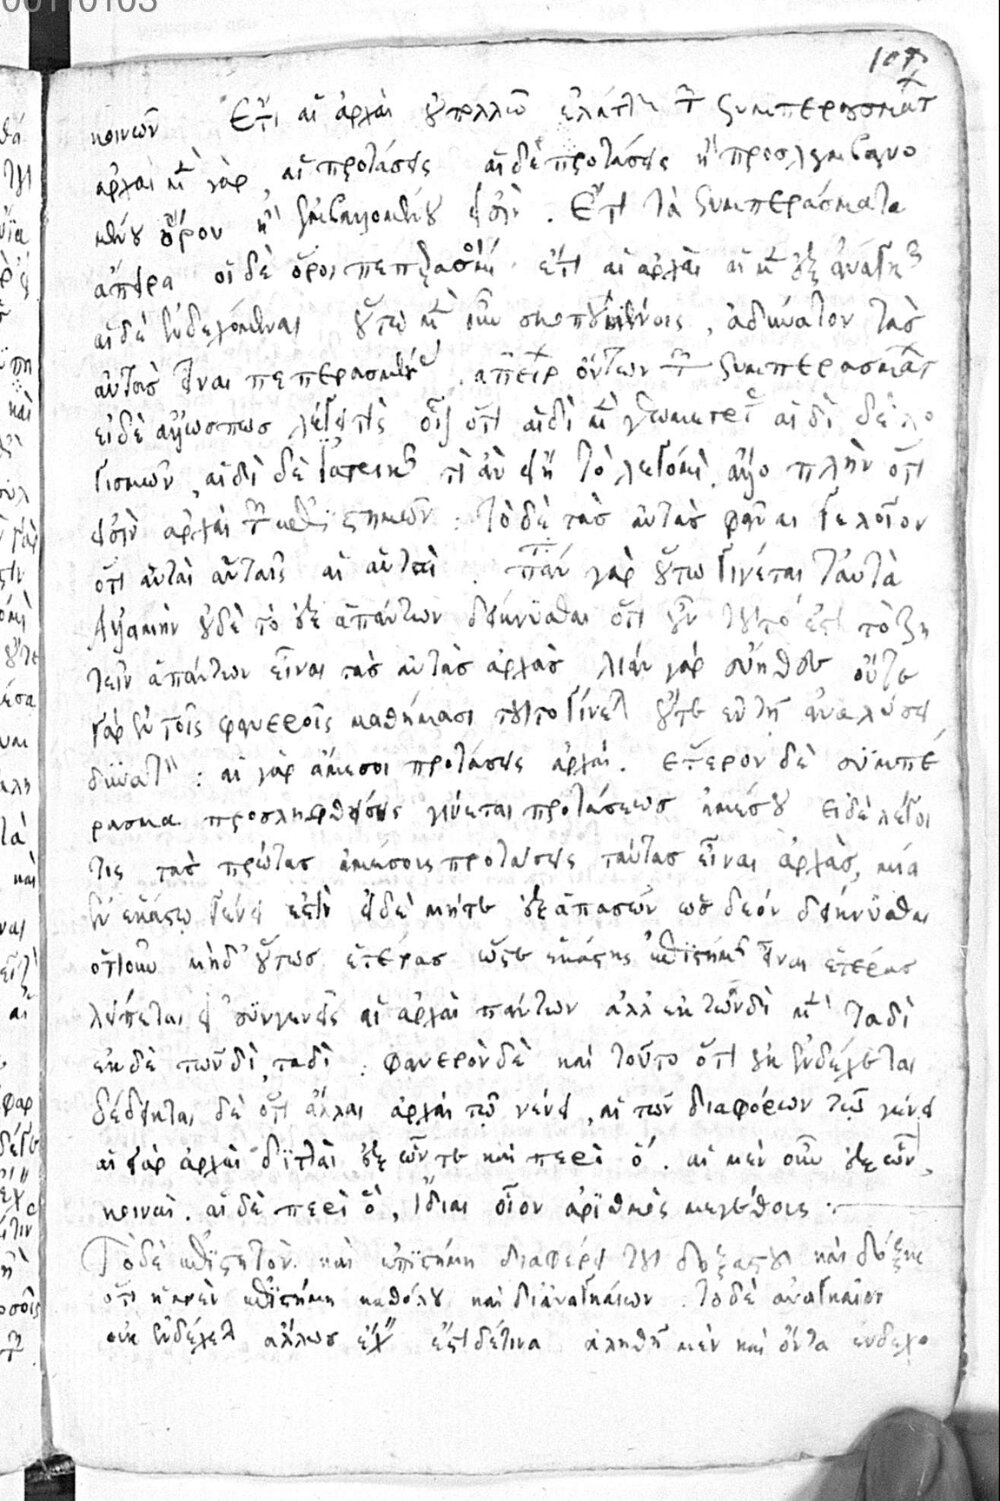 107
κοινῶν Ἔτι αἱ ἀρχαὶ οὐ πολλῷ ἐλάττους τῶν συμπερασμάτων
ἀρχαὶ μὲν γὰρ αἱ προτάσεις αἱ δὲ προτάσεις ἢ προσλαμβανο
μένου ὅρου ἢ ἐμβαλλομένου εἰσίν. Ἔτι τὰ συμπεράσματα
ἄπειρα οἱ δὲ ὅροι πεπερασμένοι. ἔτι αἱ ἀρχαὶ αἱ μὲν ἐξ ἀνάγκης
αἱ δὲ ἐνδεχόμεναι οὕτω μὲν οὖν σκοπουμένοις, ἀδύνατον τὰς
αὐτὰς εἶναι πεπερασμένας, ἀπείρων ὄντων τῶν συμπερασμάτων
εἰ δὲ ἄλλως πως λέγει τις οἷον ὅτι αἱδὶ μὲν γεωμετρίας αἱδὶ δὲ λο
γισμῶν, αἱδὶ δὲ ἰατρικῆς τί ἂν εἴη τὸ λεγόμενον ἄλλο πλὴν ὅτι
εἰσὶν ἀρχαὶ τῶν ἐπιστημῶν: τὸ δὲ τὰς αὐτὰς φᾶναι γελοῖον
ὅτι αὐταὶ αὑταῖς αἱ αὐταί. πᾶν γὰρ οὕτω γίνεται ταὐτὰ
ἀλλὰ μὴν οὐδὲ τὸ ἐξ ἁπάντων δείκνυσθαι ὁτιοῦν τοῦτό ἐστι τὸ ζη
τεῖν ἁπάντων εἶναι τὰς αὐτὰς ἀρχάς λίαν γὰρ εὔηθες οὔτε
γὰρ ἐν τοῖς φανεροῖς μαθήμασι τοῦτο γίνεται οὔτε ἐν τῇ ἀναλύσει
δυνατόν: αἱ γὰρ ἄμεσοι προτάσεις ἀρχαί. ἕτερον δὲ συμπέ
ρασμα προσληφθείσης γίνεται προτάσεως ἀμέσου εἰ δὲ λέγοι
τις τὰς πρώτας ἀμέσους προτάσεις ταύτας εἶναι ἀρχάς, μία
ἐν ἑκάστῳ γένει ἐστίν εἰ δὲ μήτε ἐξ ἁπασῶν ὡς δέον δείκνυσθαι
ὁτιοῦν μηδ' οὕτως ἑτέρας ὥστε ἑκάστης ἐπιστήμης εἶναι ἑτέρας
λείπεται εἰ συγγενεῖς αἱ ἀρχαὶ πάντων ἀλλ' ἐκ τωνδὶ μὲν ταδὶ
ἐκ δὲ τωνδὶ ταδὶ. φανερὸν δὲ καὶ τοῦτο ὅτι οὐκ ἐνδέχεται
δέδεικται δὲ ὅτι ἄλλαι ἀρχαὶ τῷ γένει, αἱ τῶν διαφόρων τῷ γένει
αἱ γὰρ ἀρχαὶ διτταὶ ἐξ ὧν τε καὶ περὶ ὅ. αἱ μὲν οὖν ἐξ ὧν,
κοιναί. αἱ δὲ περὶ ὅ, ἴδιαι οἷον ἀριθμὸς μέγεθος.
Τὸ δὲ ἐπιστητὸν καὶ ἐπιστήμη διαφέρει τοῦ δοξαστοῦ καὶ δόξης
ὅτι ἡ μὲν ἐπιστήμη καθόλου καὶ δι' ἀναγκαίων. τὸ δὲ ἀναγκαῖον
οὐκ ἐνδέχεται ἄλλως ἔχειν ἔστι δέ τινα ἀληθῆ μὲν καὶ ὄντα ἐνδεχό